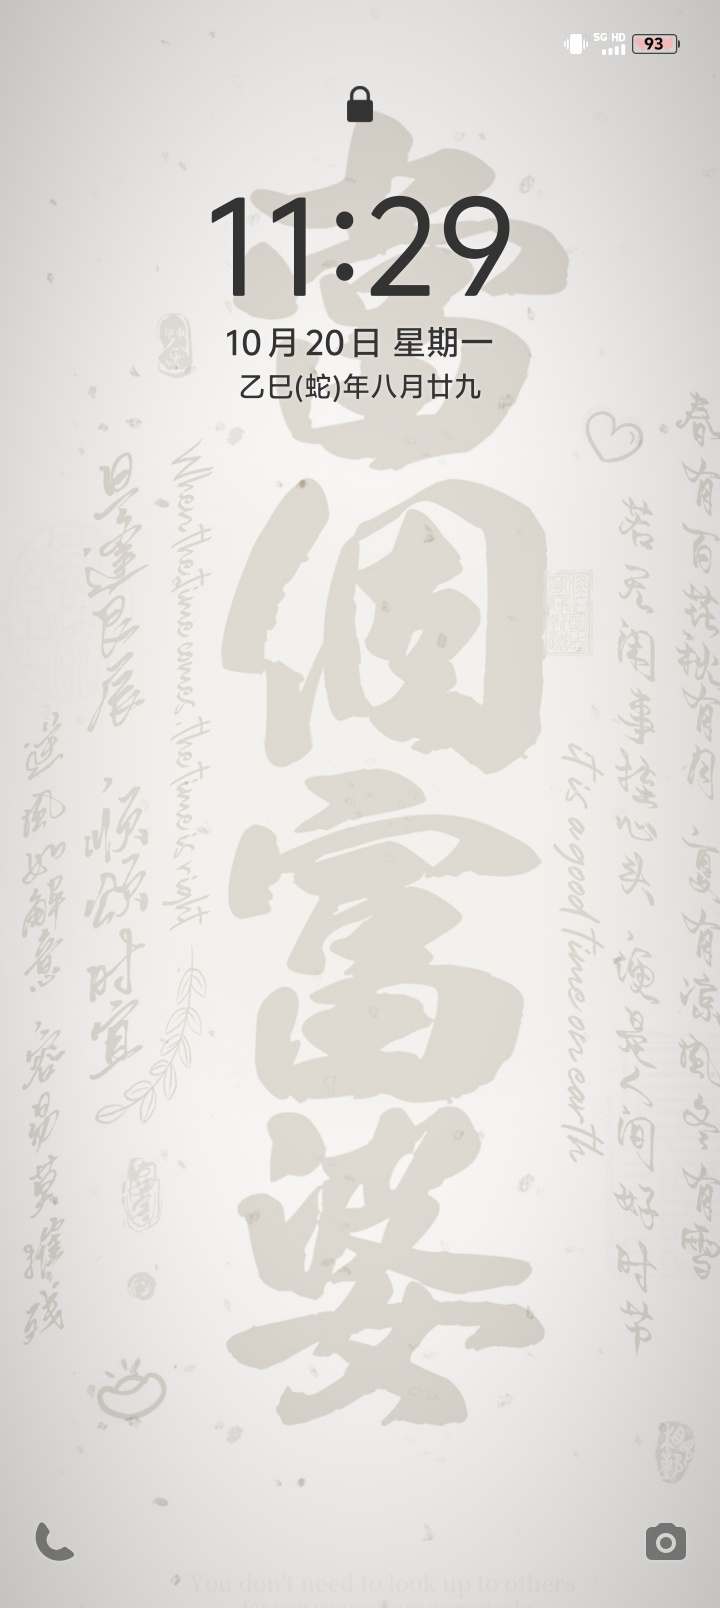 5G HD
93
11:29
10月20日 星期一
乙巳(蛇)年八月廿九
當個富婆
春有百花秋有月 夏有凉风冬有雪
若无闲事挂心头 便是人间好时节
It is a good time on earth
When the time comes, the time is right
良辰
顺颂时宜
逆风如解意 容易莫摧残
You don't need to look up to others